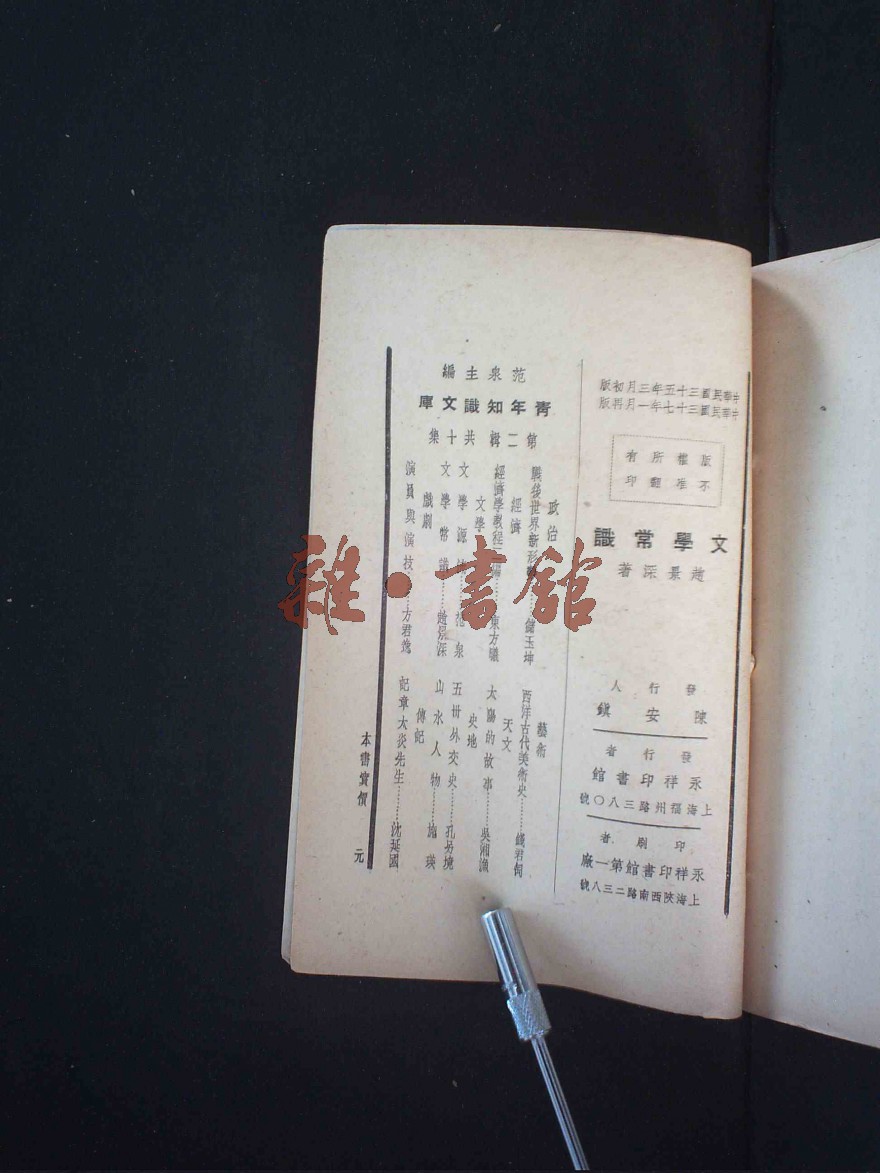 中華民國三十五年三月初版
中華民國三十七年一月再版
版權所有
不准翻印
文學常識
趙景深著
發行人
陳安鎮
發行者
永祥印書館
上海福州路三八〇號
印刷者
永祥印書館第一廠
上海陝西南路二三八號
范泉主編
青年知識文庫
第二輯共十集
政治
戰後世界新形 儲玉坤
經濟
經濟學教程 東方曦
文學
文學源 范泉
文學常識 趙景深
戲劇
演員與演技 方君逸
藝術
西洋古代美術史 錢君匋
天文
太陽的故事 吳湘漁
史地
五卅外交史 孔另境
山水人物 施瑛
傳記
記章太炎先生 沈延國
本書實價 元
雜·書館